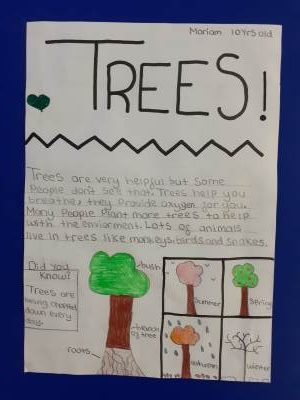 Mariam 10 Yrs old
TREES!
Trees are very helpful but some
People don't see that. Trees help you
breathe, they Provide oxygen for you.
Many People Plant more trees to help
with the enviorment. Lots of animals
live in trees like monkeys birds and snakes.
Did You
Know!
Trees are
being chopped
down every
day.
bush
branch
of tree
roots
Summer
Spring
autumn
winter